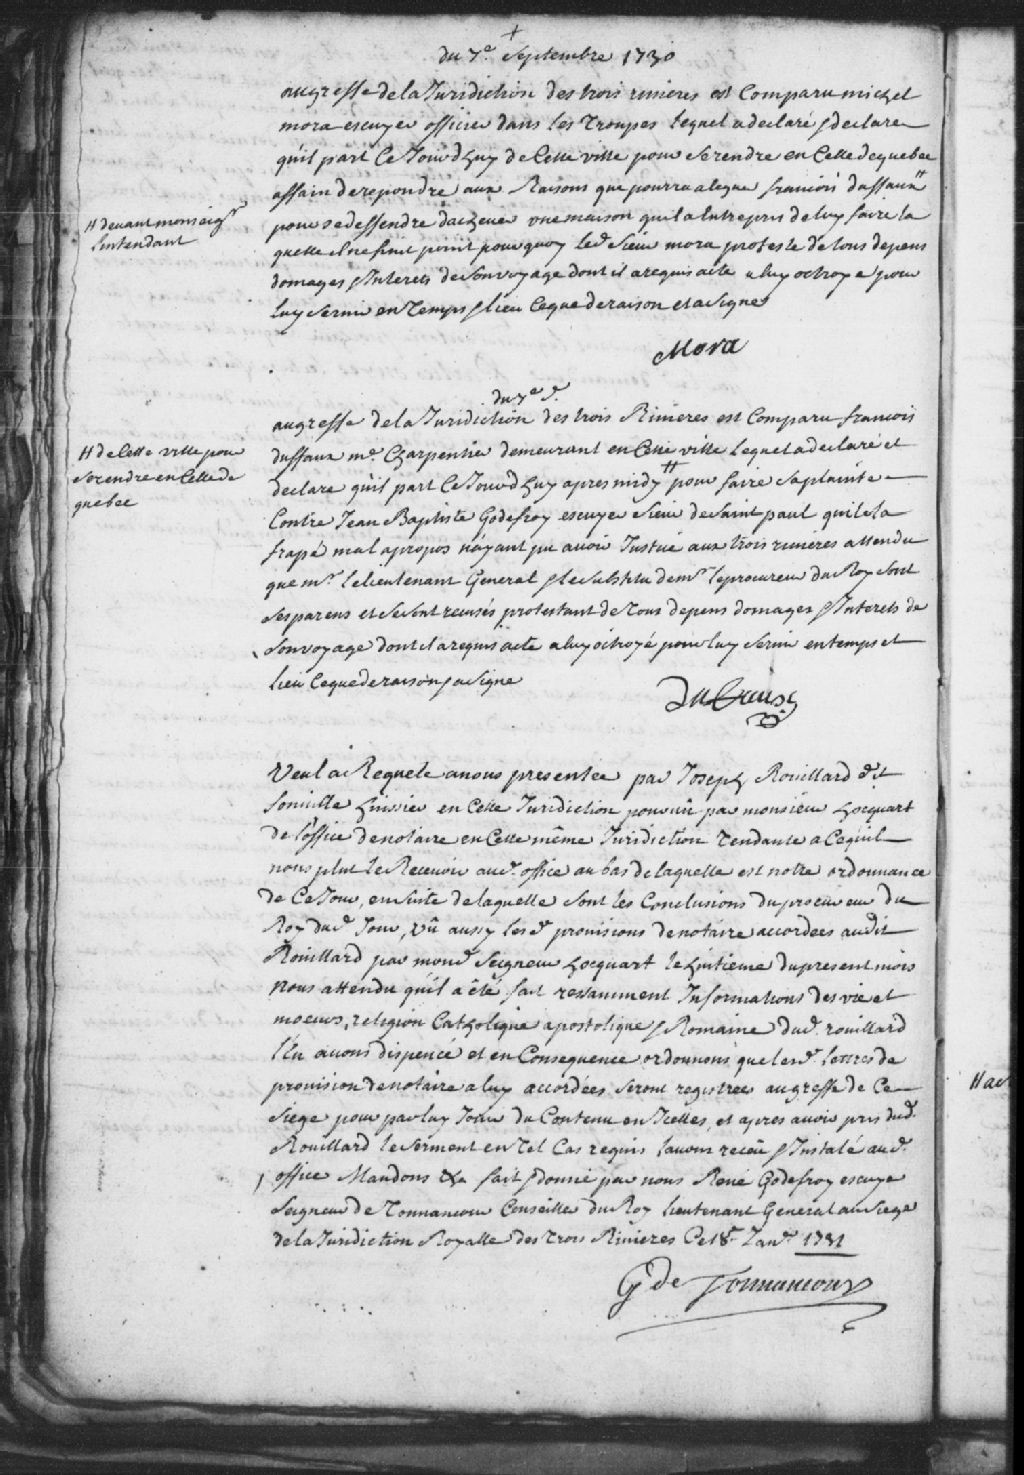 +
du 7e. Septembre 1730
au greffe de la Juridiction des trois rivieres est Comparu michel
mora escuyer officier dans les Troupes lequel a declaré & declare
qu'il part Ce Jourd'huy de Cette ville pour se rendre en Celle de quebec
affain de repondre aux Raisons que pourra alegue francois dussaux #
# devant monseigr
l'intendant
pour se deffendre d'achever une maison qu'il a Entrepris de luy faire la
quelle il ne finit point pourquoy led. Sieur mora proteste de tous depens
domages & Interets de son voyage dont il a requis acte a luy octroye pour
luy servir en Temps & lieu Ce que de raison et a signe
Mora
du 7e d.
au greffe de la Juridiction des trois Rivieres est Comparu francois
dussaux me. Charpentier demeurant en Cette ville Lequel a declaré et
# de Cette ville pour
se rendre en Celle de
quebec
declare qu'il part Ce Jourd'huy apres midy # pour faire sa plainte
Contre Jean Baptiste Godefroy escuyer Sieur de Saint paul qu'il la
frapé mal apropos n'ayant pu avoir Justice aux trois rivieres attendu
que mr. le lieutenant General & le substitu de mr. le procureur du Roy sont
ses parens et se sont recusés protestant de Tous depens domages & Interets de
son voyage dont il a requis acte a luy octroyé pour luy servir en temps et
lieu Ce que de raison & a signe
Veu la Requete a nous presentee par Joseph Rouillard dit
fonville huissier en Cette Juridiction pourvu par monsieur hocquart
de l'office de notaire en Cette même Juridiction Tendante a Ce qu'il
nous plut le Recevoir aud. office au bas de laquelle est notre ordonnance
de Ce Jour, en suite de laquelle sont les Conclusions du procureur du
Roy dud. Jour, vû aussy lesd. provisions de notaire accordees audit
Rouillard par mond. Seigneur hocquart le huitieme du present mois
Nous attendu qu'il a êté fait ressamment Informations des vie et
moeurs, religion Catholique apostolique & Romaine dud. rouillard
l'En avons dispencé et en Consequence ordonnons que lesd. lettres de
provision de notaire a luy accordées seront registrée au greffe de Ce
Siege pour par luy Jouir du Contenu en Icelles, et apres avoir pris dud.
Rouillard le serment en Tel Cas requis l'avons receu & Instalé aud.
office Mandons &a fait & donné par nous René Godefroy escuyer
Seigneur de Tonnancour Conseiller du Roy lieutenant General au Siege
de la Juridiction Royalle des Trois Rivieres Ce 18e. Janer. 1731
G de Tonnancour